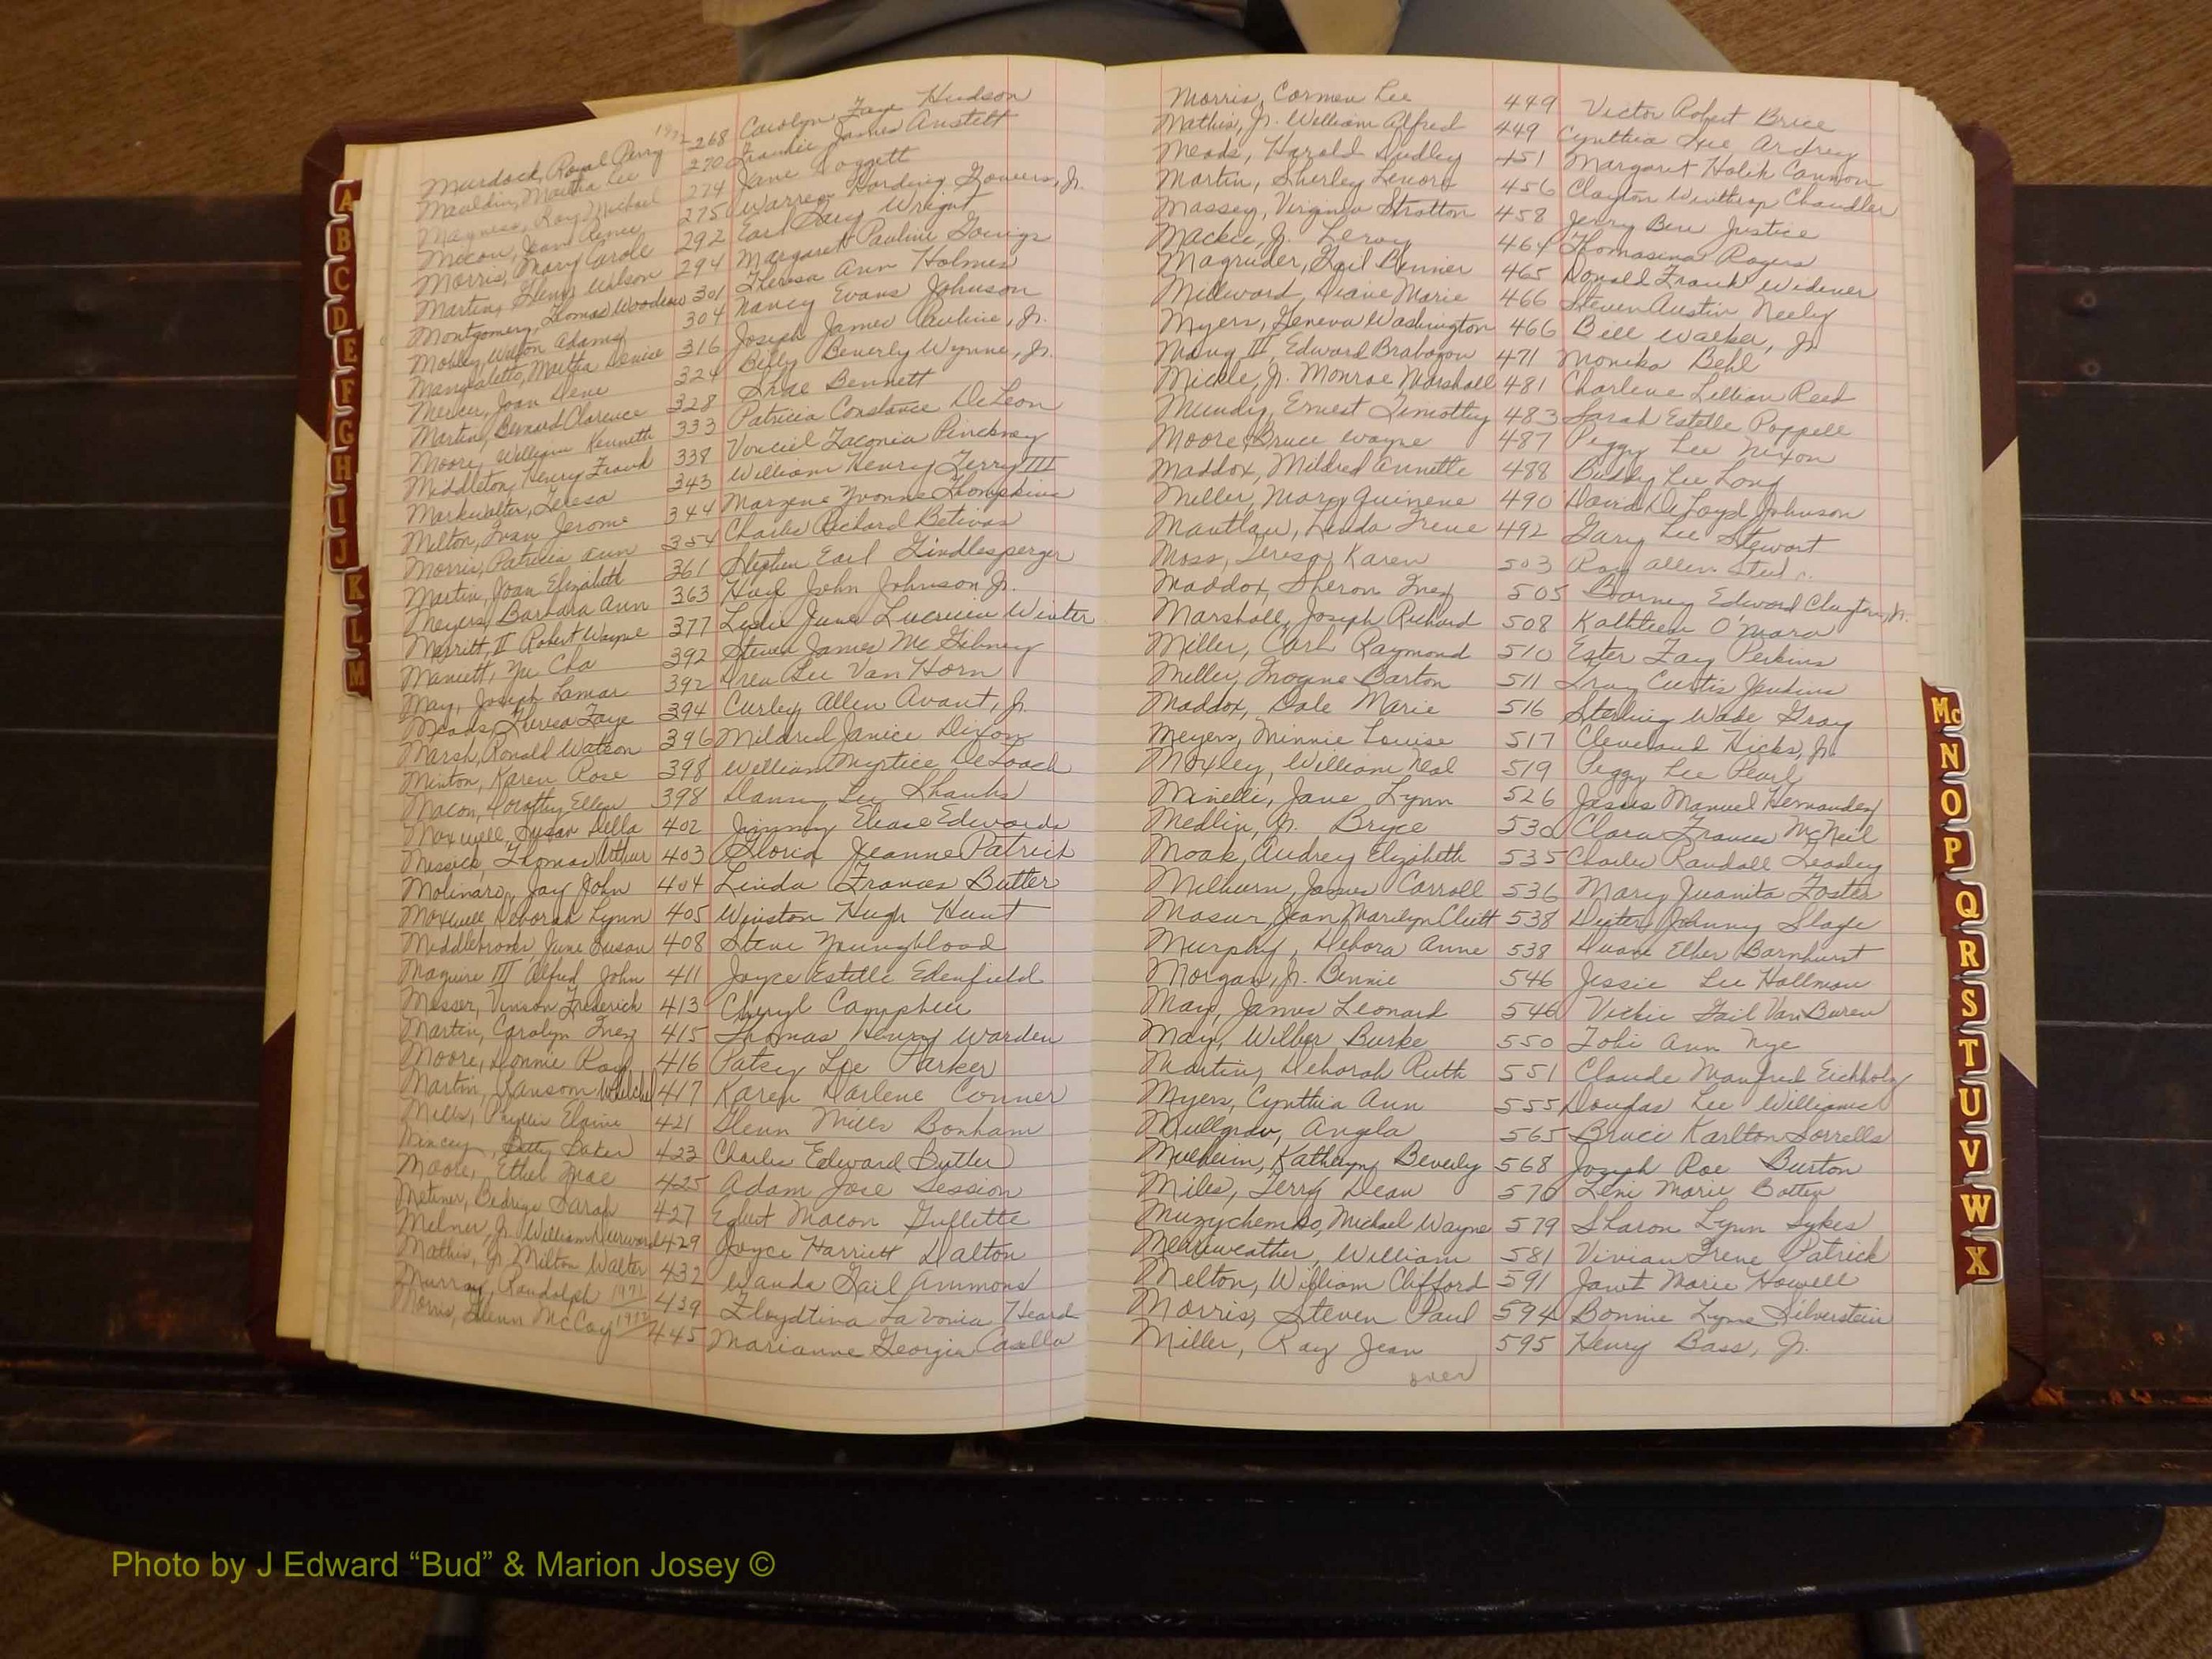 1972
Murdock, Royal Perry 268 Carolyn Faye Hudson
Mauldin, Martha Lee 270 Frankie James Anstett
Magness, Ray Michael 274 Jane Doggett
Macon, Jean Renee 275 Warren Harding Gowers, Jr.
Morris, Mary Carole 292 Earl Wright
Martin, Glenn Wilson 294 Margaret Pauline Goings
Montgomery, Thomas Woodrow 301 Theresa Ann Holmes
Mobley, Wilton Adams 304 Nancy Evans Johnson
Mangialetto, Martha Denice 316 Joseph James Pauline, Jr.
Mercer, Joan Dene 324 Billy Beverly Wynne, Jr.
Martin, Bernard Clarence 328 Bennett
Moore, William Kenneth 333 Patricia Constance DeLeon
Middleton, Henry Frank 338 Laconia Pinckney
Markwalter, Teresa 343 William Henry Terry III
Milton, Ivan Jerome 344 Marzene Yvonne Thompkins
Morris, Patricia Ann 354 Charles Richard Betivas
Martin, Joan Elizabeth 361 Stephen Earl Lindlesperger
Meyers, Barbara Ann 363 Huey John Johnson, Jr.
Merritt, II Robert Wayne 377 Leslie June Lucreica Winter
Yu Cha 392 Steven James McGibney
May, Joseph Lamar 392 Drew Lee Van Horn
Meads, Theresa Faye 394 Curley Allen Avant, Jr.
Marsh, Ronald Watson 396 Mildred Janice Dixon
Minton, Karen Rose 398 William Myrtice DeLoach
Macon, Dorothy Ellen 398 Danny Lee Shanks
Maxwell, Susan Della 402 Jimmy Elease Edwards
Messick, Thomas Arthur 403 Gloria Jeanne Patrick
Molinaro, Jay John 404 Linda Frances Butler
Maxwell Deborah Lynn 405 Winston Hugh Hunt
Middlebrooks June Susan 408 Steve Youngblood
Maguire III Alfred John 411 Joyce Estelle Edenfield
Messer, Vinson Frederick 413 Cheryl Campbell
Martin, Carolyn Inez 415 Thomas Henry Warden
Moore, Donnie Ray 416 Patsy Lee Parker
Martin, Ransom 417 Karen Darlene Conner
Mills, Phyllis Elaine 421 Glenn Mills Bonham
Mincey, Betty Baker 423 Charles Edward Butler
Moore, Ethel Mae 425 Adam Jose Session
Sarah 427 Egbert Macon Gullette
Milner, Jr. William Durward 429 Joyce Harriett Dalton
Mathis, Jr. Milton Walter 432 Wanda Gail Ammons
Murray, Randolph 1971 439 Floydtina LaVonia Heard
Morris, Glenn McCoy 1972 445 Marianne Georgia Casella
Morris, Carmen Lee 449 Victor Robert Brice
Mathis, Jr. William Alfred 449 Cynthia Sue Ardrey
Meads, Harold Dudley 451 Margaret Halik Cannon
Martin, Sherley Lenora 456 Clayton Winthrop Chandler
Massey, Virginia Stratton 458 Jerry Ben Justice
Mackie, Jr. Leroy 464 Thomasina Rogers
Magruder, Gail Binner 465 Donald Frank Widener
Milward, Diane Marie 466 Steven Austin Neely
Myers, Geneva Washington 466 Bill Walker, Jr.
II, Edward Brabazon 471 Monika Behl
Mickle, Jr. Monroe Marshall 481 Charlene Lillian Reed
Mundy, Ernest Timothy 483 Sarah Estelle Poppell
Moore, Bruce Wayne 487 Peggy Lee Nixon
Maddox, Mildred Annette 488 Buddy Lee Long
Miller, Mary Quinene 490 David DeLoyd Johnson
Linda Irene 492 Gary Lee Stewart
Moss, Teresa Karen 503 Ray Allen
Maddox, Sheron Inez 505 Barney Edward Clayton, Jr.
Marshall, Joseph Richard 508 Kathleen O'Mara
Miller, Carl Raymond 510 Ester Fay Perkins
Miller, Imogene Barton 511 Curtis Jenkins
Maddox, Dale Marie 516 Sterling Wade Gray
Meyers, Minnie Louise 517 Cleveland Hicks, Jr.
Moxley, William Neal 519 Peggy Lee Pearl
Minelli, Jane Lynn 526 Jesus Manuel Hernandez
Medlin, Jr. Bryce 530 Clara Frances McNeil
Moak, Audrey Elizabeth 535 Charles Randall Leasley
Milburn, James Carroll 536 Mary Juanita Foster
Masur, Jean Marilyn Cleitt 538 Dexter Johnny Slage
Murphy, Debora Anne 538 Duane Elber Barnhurst
Morgan, Jr. Bennie 546 Jessie Lee Hallman
May, James Leonard 546 Vickie Gail Van Buren
May, Wilber Burke 550 Tobi Ann Nye
Martin, Deborah Ruth 551 Claude Manfred Eichholz
Myers, Cynthia Ann 555 Douglas Lee Williams
Mullgrav, Angela 565 Bruce Karlton Sorrells
Mulheim, Kathryn Beverly 568 Joseph Roe Burton
Miles, Terry Dean 570 Leni Marie Botten
Muzychemko, Michael Wayne 579 Sharon Lynn Sykes
Meriweather, William 581 Vivian Irene Patrick
Melton, William Clifford 591 Janet Marie Howell
Morris, Steven Paul 594 Bonnie Lynn Silverstein
Miller, Ray Jean 595 Henry Bass, Jr.
over
A
B
C
D
E
F
G
H
I
J
K
L
M
Mc
N
O
P
Q
R
S
T
U
V
W
X
Photo by J Edward “Bud” & Marion Josey ©